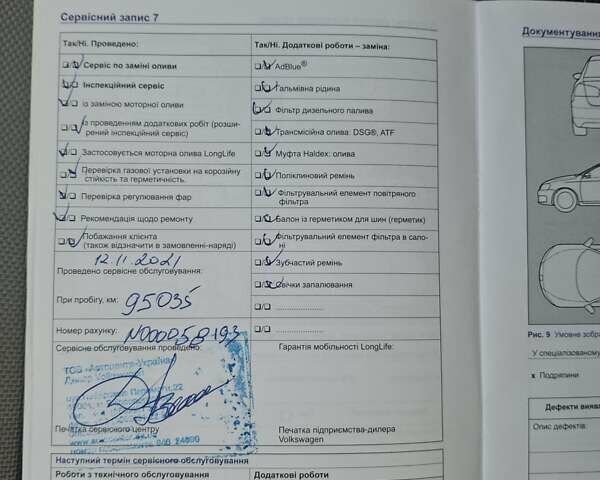 Сервісний запис 7
Так/Ні. Проведено:
Сервіс по заміні оливи
Інспекційний сервіс
із заміною моторної оливи
із проведенням додаткових робіт (розши-
рений інспекційний сервіс)
Застосовується моторна олива LongLife
Перевірка газової установки на корозійну
стійкість та герметичність.
Перевірка регулювання фар
Рекомендація щодо ремонту
Побажання клієнта
(також відзначити в замовленні-наряді)
12.11.2021
Проведено сервісне обслуговування:
При пробігу, км: 95035
Номер рахунку: N000058193
Сервісне обслуговування проведено:
ТОВ «Автоцентр-Україна»
Печатка сервісного центру
Так/Ні. Додаткові роботи – заміна:
AdBlue®
Гальмівна рідина
Фільтр дизельного палива
Трансмісійна олива: DSG®, ATF
Муфта Haldex: олива
Поликлиновий ремінь
Фільтрувальний елемент повітряного
фільтра
Балон із герметиком для шин (герметик)
Фільтрувальний елемент фільтра в сало-
ні
Зубчастий ремінь
Свічки запалювання
Гарантія мобільності LongLife:
Печатка підприємства-дилера
Volkswagen
Наступний термін сервісного обслуговування
Роботи з технічного обслуговування
Додаткові роботи
Документуванн
Рис. 9 Умовне зобра
У спеціалізованому
x Подряпини
Дефекти виявл
Опис дефектів: